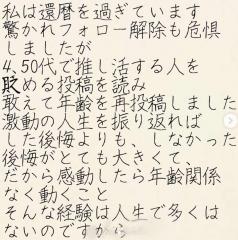 私は還暦を過ぎています
驚かれフォロー解除も危惧
しましたが
4,50代で推し活する人を
貶める投稿を読み
敢えて年齢を再投稿しました
激動の人生を振り返れば
した後悔よりも、しなかった
後悔がとても大きくて、
だから感動したら年齢関係
なく動くこと
そんな経験は人生で多くは
ないのですから